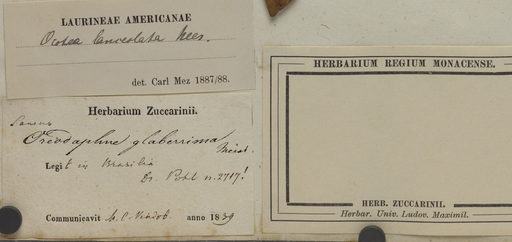 LAURINEAE AMERICANAE
Ocotea lanceolata Nees.
det. Carl Mez 1887/88.
Herbarium Zuccarinii.
Oreodaphne glaberrima
Meisn.
Legit in Brasilia
Dr. Pohl n. 2717!
Communicavit M. C. Vindob. anno 1839
HERBARIUM REGIUM MONACENSE.
HERB. ZUCCARINII.
Herbar. Univ. Ludov. Maximil.